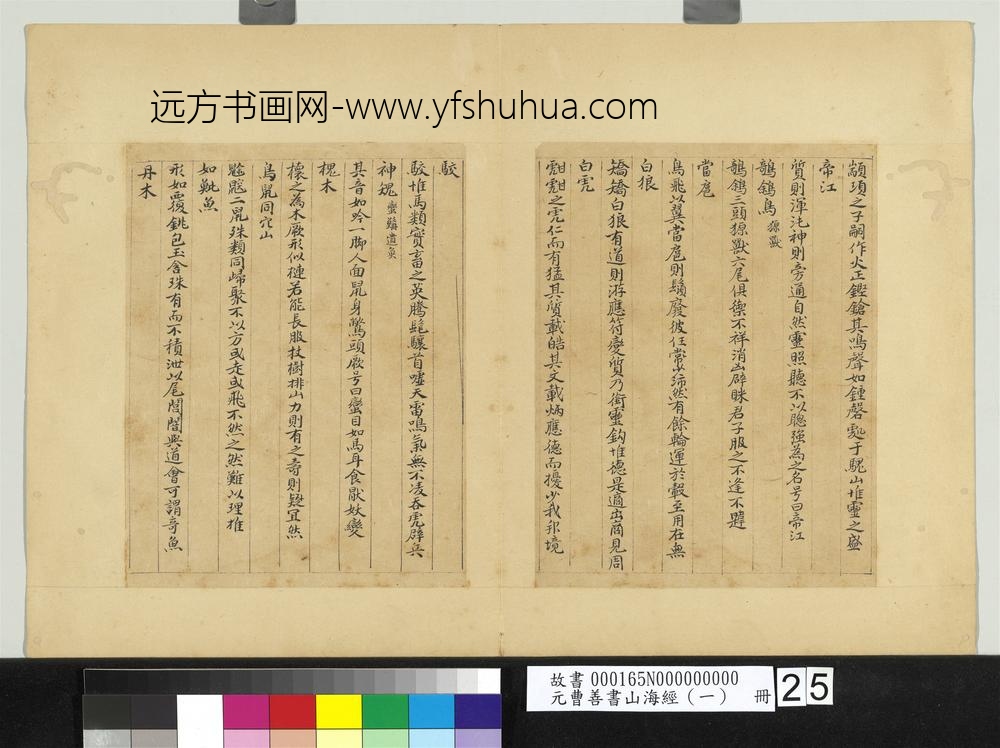 远方书画网-www.yfshuhua.com
顓頊之子嗣作火正鏗鎗其鳴聲如鍾磬處于騩山堆靈之盛
帝江
質則渾沌神則旁通自然靈照聽不以聰強為之名号曰帝江
鵸鵌鳥 獂獸
鵸鵌三頭獂獸六尾俱禦不祥消凶辟眯君子服之不逢不韙
當扈
鳥飛以翼當扈則鬚廢彼任常沛然有餘輪運於轂至用在無
白狼
矯矯白狼有道則游應符變質乃銜靈鈎堆德是適出商見周
白虎
虪虪之虎仁而有猛其質載皓其文載炳應德而擾止我邦境
駮
駮堆馬類實畜之英騰髦驤首噓天雷鳴氣無不凌吞虎辟兵
神媿 蠻 遺魚
其音如吟一脚人面鼠身鱉頭厥号曰蠻目如馬耳食厭妖變
櫰木
櫰之為木厥形似槤若能長服拔樹排山力則有之壽則疑宜然
鳥鼠同穴山
鵌鼵二鼠殊類同歸聚不以方或走或飛不然之然難以理推
如魮魚
形如覆銚包玉含珠有而不積泄以尾閭闇與道會可謂奇魚
丹木
故書 000165N000000000
元曹善書山海經(一) 冊 25